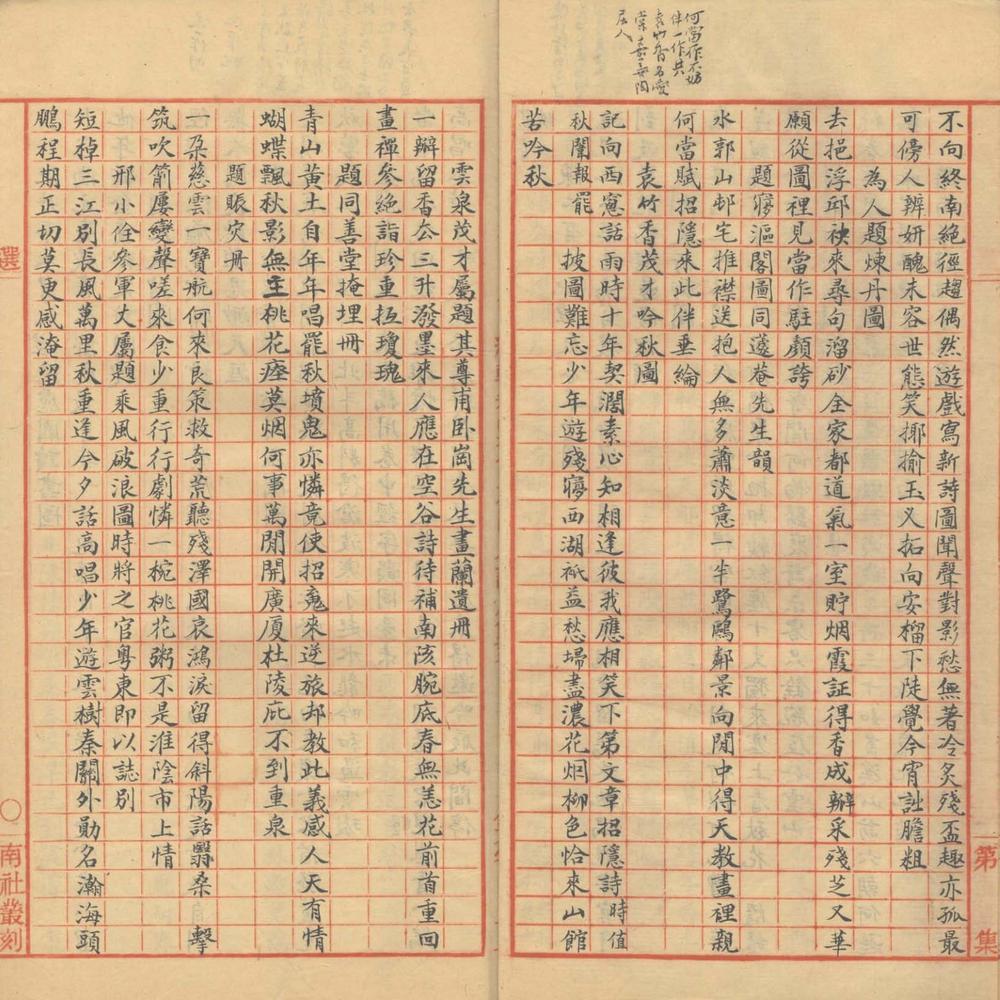 何當作不妨
伴一作共
袁竹香名愛
棠嘉
居人
第 集
不向終南絕徑趨偶然遊戲寫新詩圖聞聲對影愁無著冷炙殘盃趣亦孤最
可傍人辨妍醜未容世態笑揶揄玉义拓向安榴下陡覺今宵詘膽粗
為人題煉丹圖
去挹浮邱袂來尋句溜砂全家都道氣一室貯烟霞証得香成瓣采殘芝又華
願從圖裡見當作駐顏誇
題寢漚閣圖同蘧菴先生韻
水郭山邨宅推襟送抱人無多蕭淡意一半鷺鷗鄰景向閒中得天教畫裡親
何當賦招隱來此伴垂綸
袁竹香茂才吟秋圖
記向西窻話雨時十年契濶素心知相逢彼我應相笑下第文章招隱詩時值
秋闈報罷 披圖難忘少年遊殘寢西湖祇益愁埽盡濃花烟柳色恰來山館
苦吟秋
雲泉茂才屬題其尊甫卧崗先生畫蘭遺冊
一瓣留香忩三升潑墨來人應在空谷詩待補南陔腕底春無恙花前首重回
畫禪參絕詣珍重抵瓊瑰
題同善堂掩埋冊
青山黃土自年年唱罷秋墳鬼亦憐竟使招䰟來逆旅邦教此義感人天有情
蝴蝶飄秋影無主桃花瘞莫烟何事萬閒開廣厦杜陵庇不到重泉
題賑灾冊
一朶慈雲一寶航何來良策救奇荒聽殘澤國哀鴻淚留得斜陽話翳桑 擊
筑吹簫屢變聲嗟來食少重行行劇憐一椀桃花粥不是淮陰市上情
邢小佺參軍大屬題乘風破浪圖時將之官粵東即以誌別
短棹三江別長風萬里秋重逢今夕話高唱少年遊雲樹秦關外勛名瀚海頭
鵬程期正切莫更感淹留
選 〇 南社叢刻